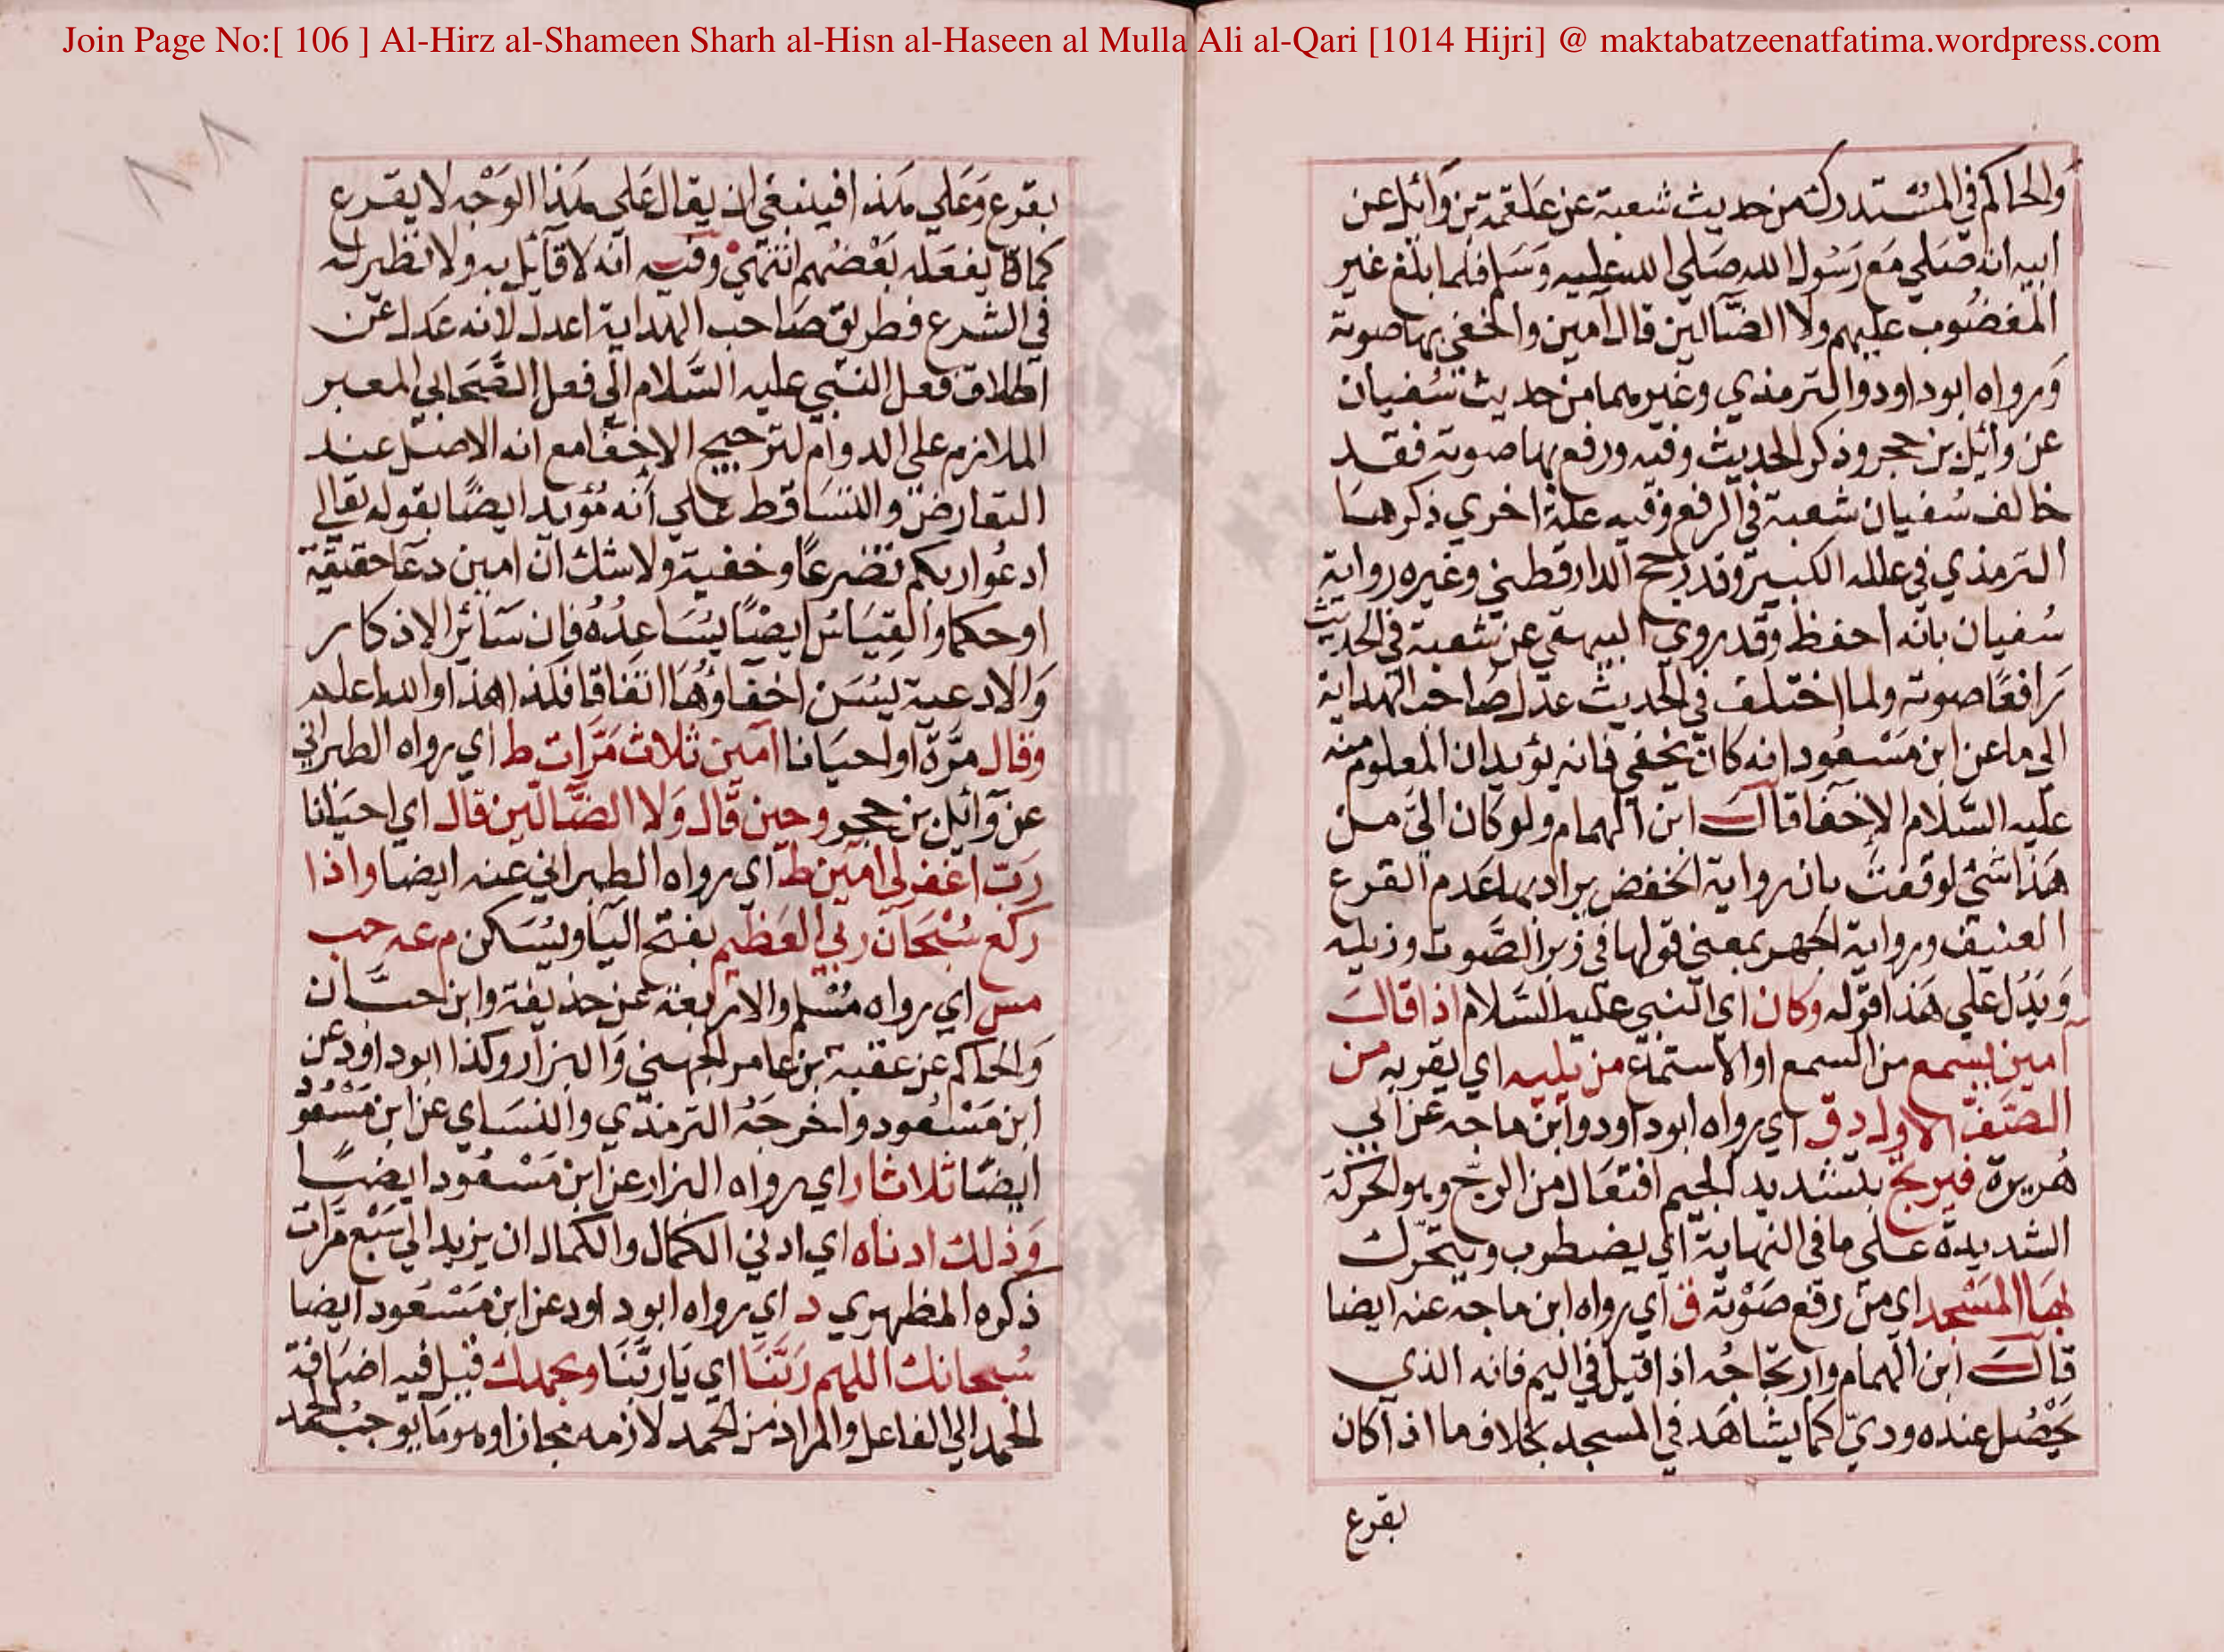 Join Page No:[ 106 ] Al-Hirz al-Shameen Sharh al-Hisn al-Haseen al Mulla Ali al-Qari [1014 Hijri] @ maktabatzeenatfatima.wordpress.com
والحاكم في المستدرك من حديث شعبة عن علقمة بن وائل عن
ابيه انه صلي مع رسول الله صلي الله عليه وسلم فلما بلغ غير
المغضوب عليهم ولا الضالين قال آمين واخفي بها صوته
ورواه ابوداود والترمذي وغيرهما من حديث سفيان
عن وائل بن حجر وذكر الحديث وفيه ورفع بها صوته فقد
خالف سفيان شعبة في الرفع وفيه علة اخري ذكرها
الترمذي في علله الكبير وقد رجح الدارقطني وغيره رواية
سفيان بانه احفظ وقد روي البيهقي عن شعبة في الحديث
رافعا صوته ولما اختلف في الحديث عدل صاحب الهداية
الي ما عن ابن مسعود انه كان يخفي فانه يؤيد ان المعلوم منه
عليه السلام الاخفا قال ابن الهمام ولو كان الي من
هذا شئ لوفقت بان رواية الخفض يراد بها عدم القرع
العنيف ورواية الجهر بمعني قولها في زبر الصوت وذيله
ويدل علي هذا قوله وكان اي النبي عليه السلام اذا قال
آمين يسمع من السمع او الاستماع من يليه اي بقربه من
الصف الاول د ق اي رواه ابوداود وابن ماجه عن ابي
هريرة فيرتج بتشديد الجيم افتعال من الرج وهو الحركة
الشديدة علي ما في النهاية اي يضطرب ويتحرك
بها المسجد اي من رفع صوته ق اي رواه ابن ماجه عنه ايضا
قال ابن الهمام وارتجاجه اذا قيل في اليم فانه الذي
يحصل عنده ودي كما يشاهد في المسجد بخلاف ما اذا كان
بقرع
بقرع وعلي هذا فينبغي ان يقال علي هذا الوجه لا يقرع
كما يفعله بعضهم انتهي وفيه انه لا قائل به ولا نظير له
في الشرع فطريق صاحب الهداية اعدل لانه عدل عن
اطلاق فعل النبي عليه السلام الي فعل الصحابي المعبر
الملازم علي الدوام لترجيح الاخفا مع انه الاصل عند
التعارض والتساقط علي انه مؤيد ايضا بقوله تعالي
ادعوا ربكم تضرعا وخفية ولا شك ان امين دعا حقيقة
او حكما والقياس ايضا يساعده فان سائر الاذكار
والادعية يسن اخفاؤها اتفاقا فكذا هذا والله اعلم
وقال مرة او احيانا آمين ثلاث مرات ط اي رواه الطبراني
عن وائل بن حجر وحين قال ولا الضالين قال اي احيانا
رب اغفر لي امين ط اي رواه الطبراني عنه ايضا واذا
ركع سبحان ربي العظيم بفتح اليا ويسكن م عه حب
مس اي رواه مسلم والاربعة عن حذيفة وابن حبان
والحاكم عن عقبة بن عامر الجهني والبزار وكذا ابوداود عن
ابن مسعود واخرجه الترمذي والنساي عن ابن مسعود
ايضا ثلاثا ر اي رواه البزار عن ابن مسعود ايضا
وذلك ادناه اي ادني الكمال والكمال ان يزيد الي سبع مرات
ذكره المظهري د اي رواه ابوداود عن ابن مسعود ايضا
سبحانك اللهم ربنا اي يا ربنا وبحمدك قيل فيه اضافة
الحمد الي الفاعل والمراد من الحمد لازمه مجازا وهو ما يوجب الحمد